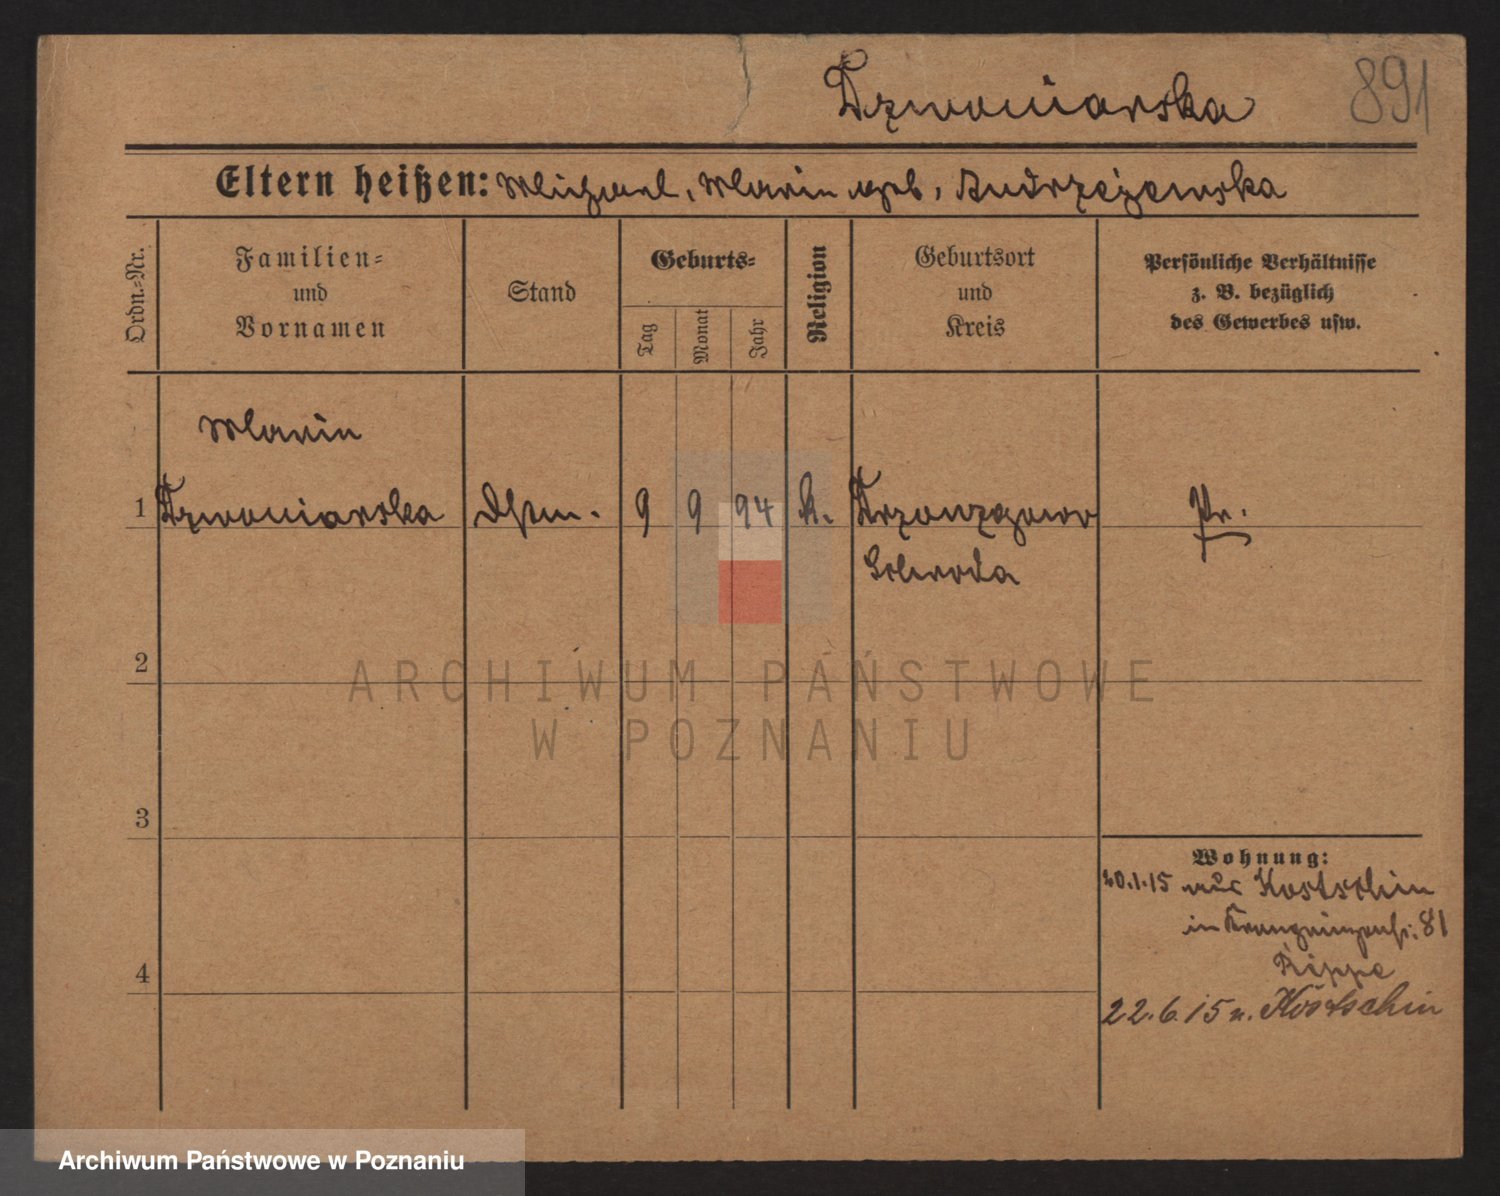 Dzwoniarska
891
Eltern heißen: Michael, Marie geb. Andrzejewska
Ordn.-Nr.
Familien-
und
Vornamen
Stand
Geburts-
Tag
Monat
Jahr
Religion
Geburtsort
und
Kreis
Persönliche Verhältnisse
z. B. bezüglich
des Gewerbes usw.
Marie
1 Dzwoniarska 9 9 94 k. Pr.
Schroda
2
ARCHIWUM PAŃSTWOWE
W POZNANIU
3
Wohnung:
20.1.15 aus Kostschin
in Kronprinzenstr. 81
Rippe
4
22.6.15 n. Kostschin
Archiwum Państwowe w Poznaniu